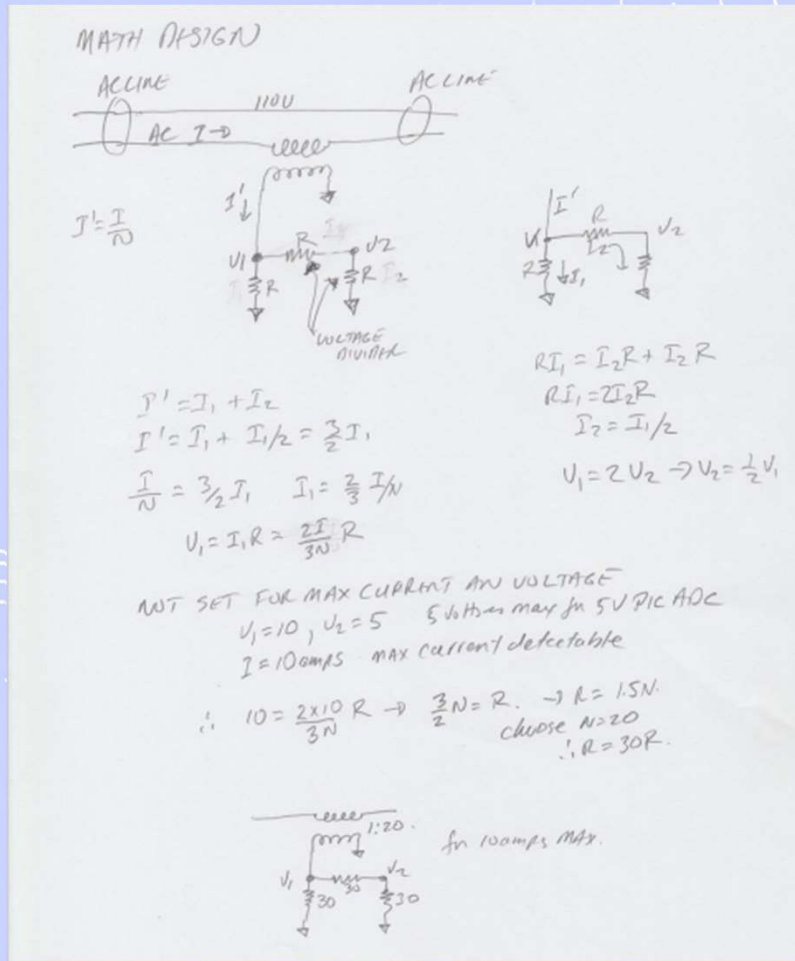 MATH DESIGN
AC LINE
AC LINE
110V
AC I→
I' = I/N
I'↓
V1
R
V2
R
I2
R
VOLTAGE
DIVIDER
I'
R
V1
V2
I2
R
↓I1
RI1 = I2R + I2R
RI1 = 2I2R
I2 = I1/2
V1 = 2V2 → V2 = 1/2 V1
I' = I1 + I2
I' = I1 + I1/2 = 3/2 I1
I/N = 3/2 I1 I1 = 2/3 I/N
V1 = I1R = 2I/3N R
NOT SET FOR MAX CURRENT AN VOLTAGE
V1 = 10, V2 = 5 5 volts max for 5V PIC ADC
I = 10 amps MAX current detectable
∴ 10 = 2x10/3N R → 3/2 N = R. → R = 1.5N.
choose N=20
∴ R = 30R.
1:20.
for 10 amps MAX.
V1
30
V2
30
30